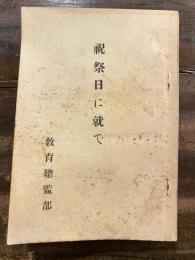 祝祭日に就て
教育總監部